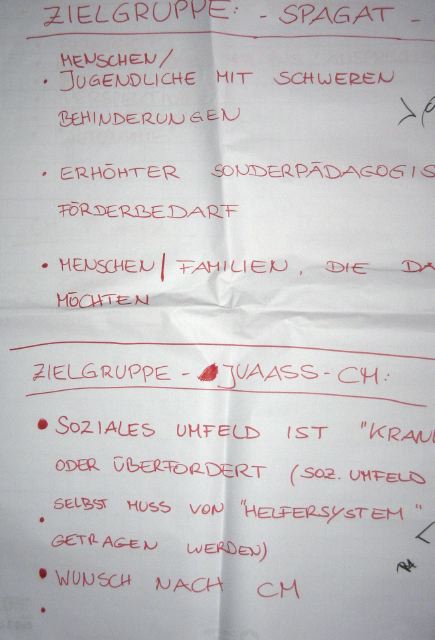 ZIELGRUPPE: - SPAGAT -
MENSCHEN/
• JUGENDLICHE MIT SCHWEREN
BEHINDERUNGEN
• ERHÖHTER SONDERPÄDAGOGIS
FÖRDERBEDARF
• MENSCHEN/FAMILIEN, DIE DA
MÖCHTEN
ZIELGRUPPE - JUAASS - CM:
• SOZIALES UMFELD IST "KRAN
ODER ÜBERFORDERT (SOZ. UMFELD
SELBST MUSS VON "HELFERSYSTEM"
• GETRAGEN WERDEN)
• WUNSCH NACH CM
•